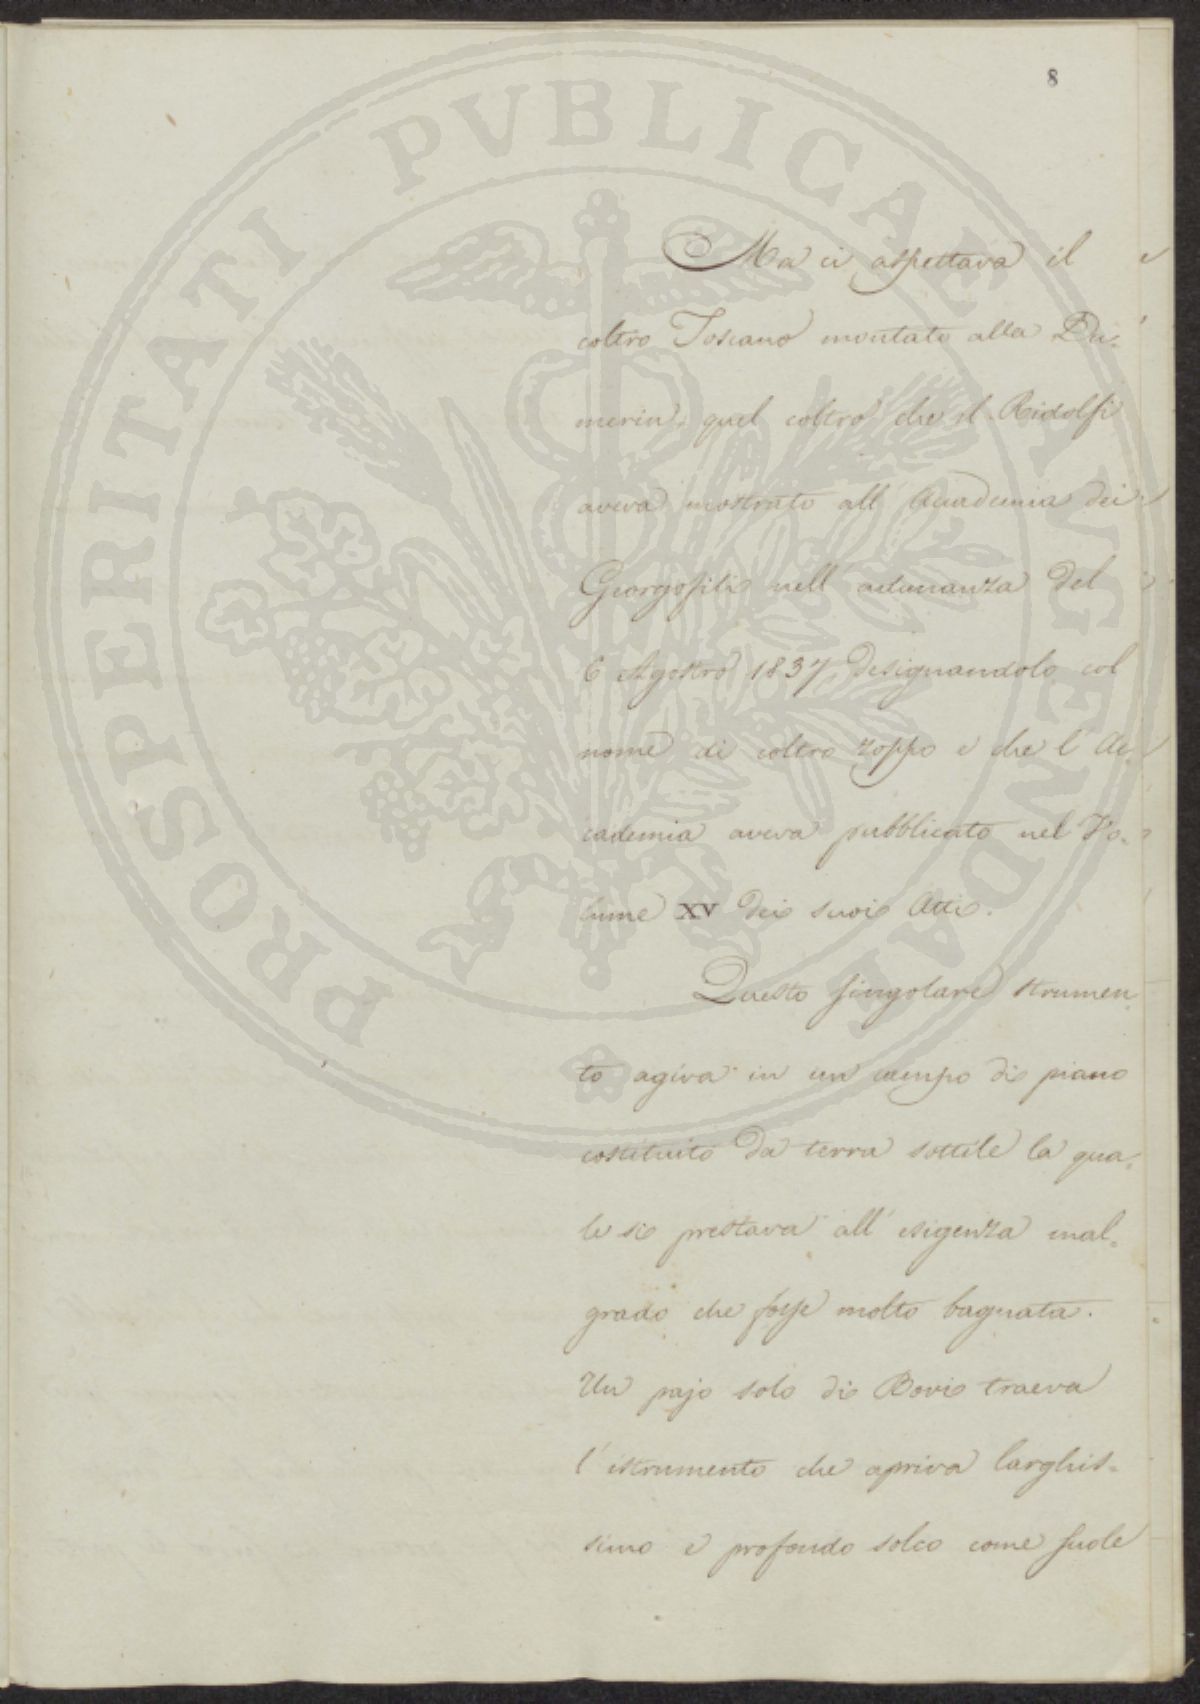 8
PROSPERITATI PVBLICAE AVGENDAE
Ma ci aspettava il
coltro Toscano montato alla Du-
merin, quel coltro che il Ridolfi
aveva mostrato all' Accademia dei
Georgofili nell' adunanza del
6 Agosto 1837 designandolo col
nome di coltro zoppo e che l' Ac-
cademia aveva pubblicato nel Vo-
lume XV dei suoi Atti.
Questo singolare strumen-
to agiva in un campo di piano
costituito da terra sottile la qua-
le si prestava all' esigenza mal-
grado che fosse molto bagnata.
Un pajo solo di Bovi traeva
l' istrumento che apriva larghis-
simo e profondo solco come suole